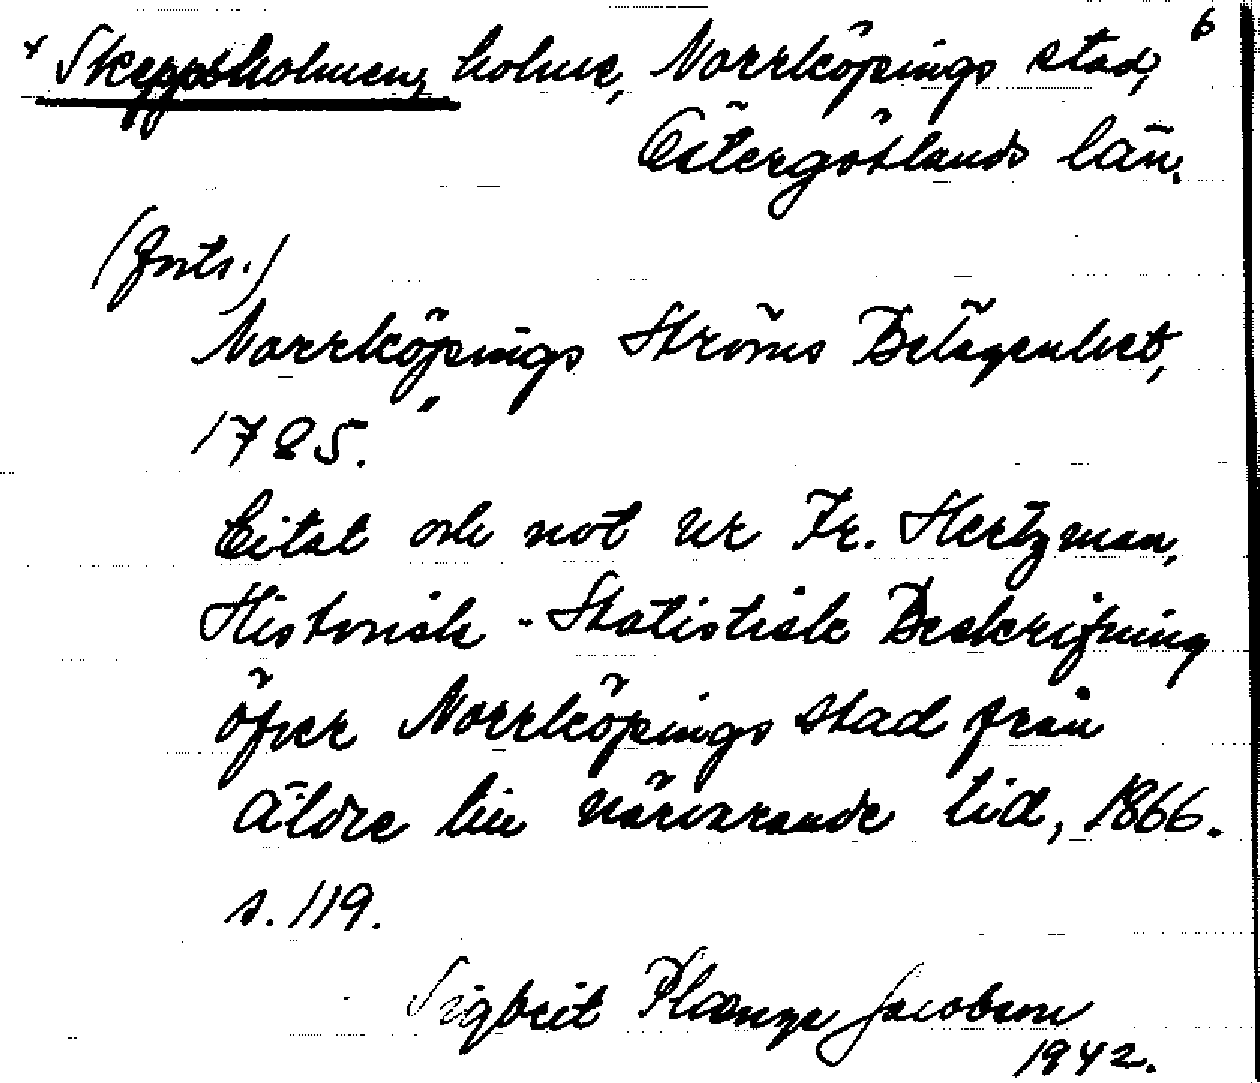 6
× Skeppsholmen, holme, Norrköpings stad,
Östergötlands län.
(forts.)
Norrköpings Ströms Belägenhet,
1785.
Citat och not ur Fr. Hertzman,
Historisk - Statistisk Beskrifning
öfver Norrköpings stad från
äldre till närvarande tid, 1866.
s. 119.
Sigbrit Plænge Jacobson
1942.